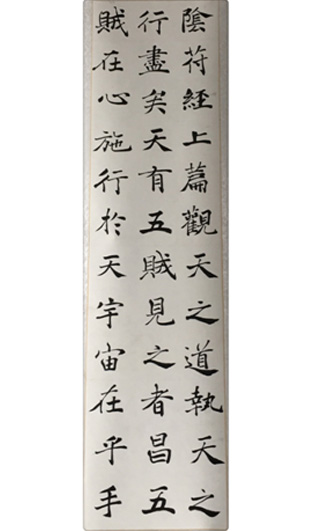 陰符經上篇觀天之道執天之
行盡矣天有五賊見之者昌五
賊在心施行於天宇宙在乎手